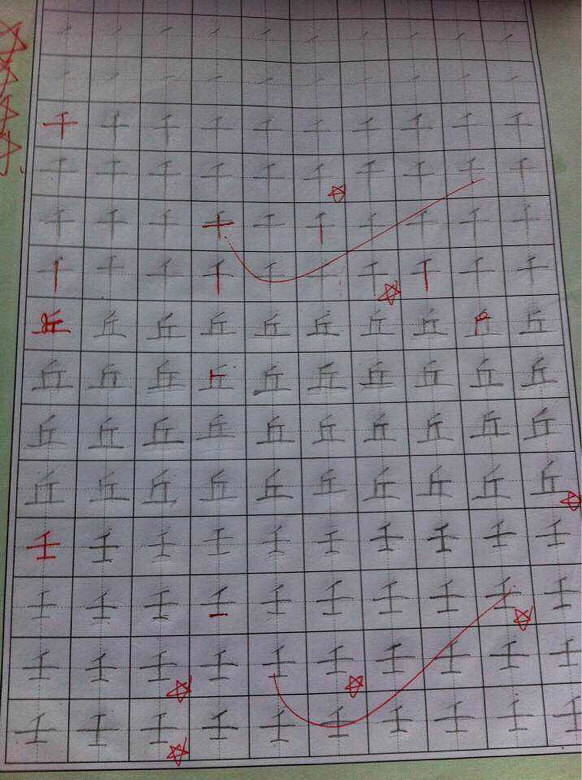 千千千千千千千千千千
千千千千千千千千千千
千千千千千千千千千千
千千千千千千千千千千
丘丘丘丘丘丘丘丘丘丘
丘丘丘丘丘丘丘丘丘丘
丘丘丘丘丘丘丘丘丘丘
丘丘丘丘丘丘丘丘丘丘
壬壬壬壬壬壬壬壬壬壬
壬壬壬壬壬壬壬壬壬壬
壬壬壬壬壬壬壬壬壬壬
壬壬壬壬壬壬壬壬壬壬